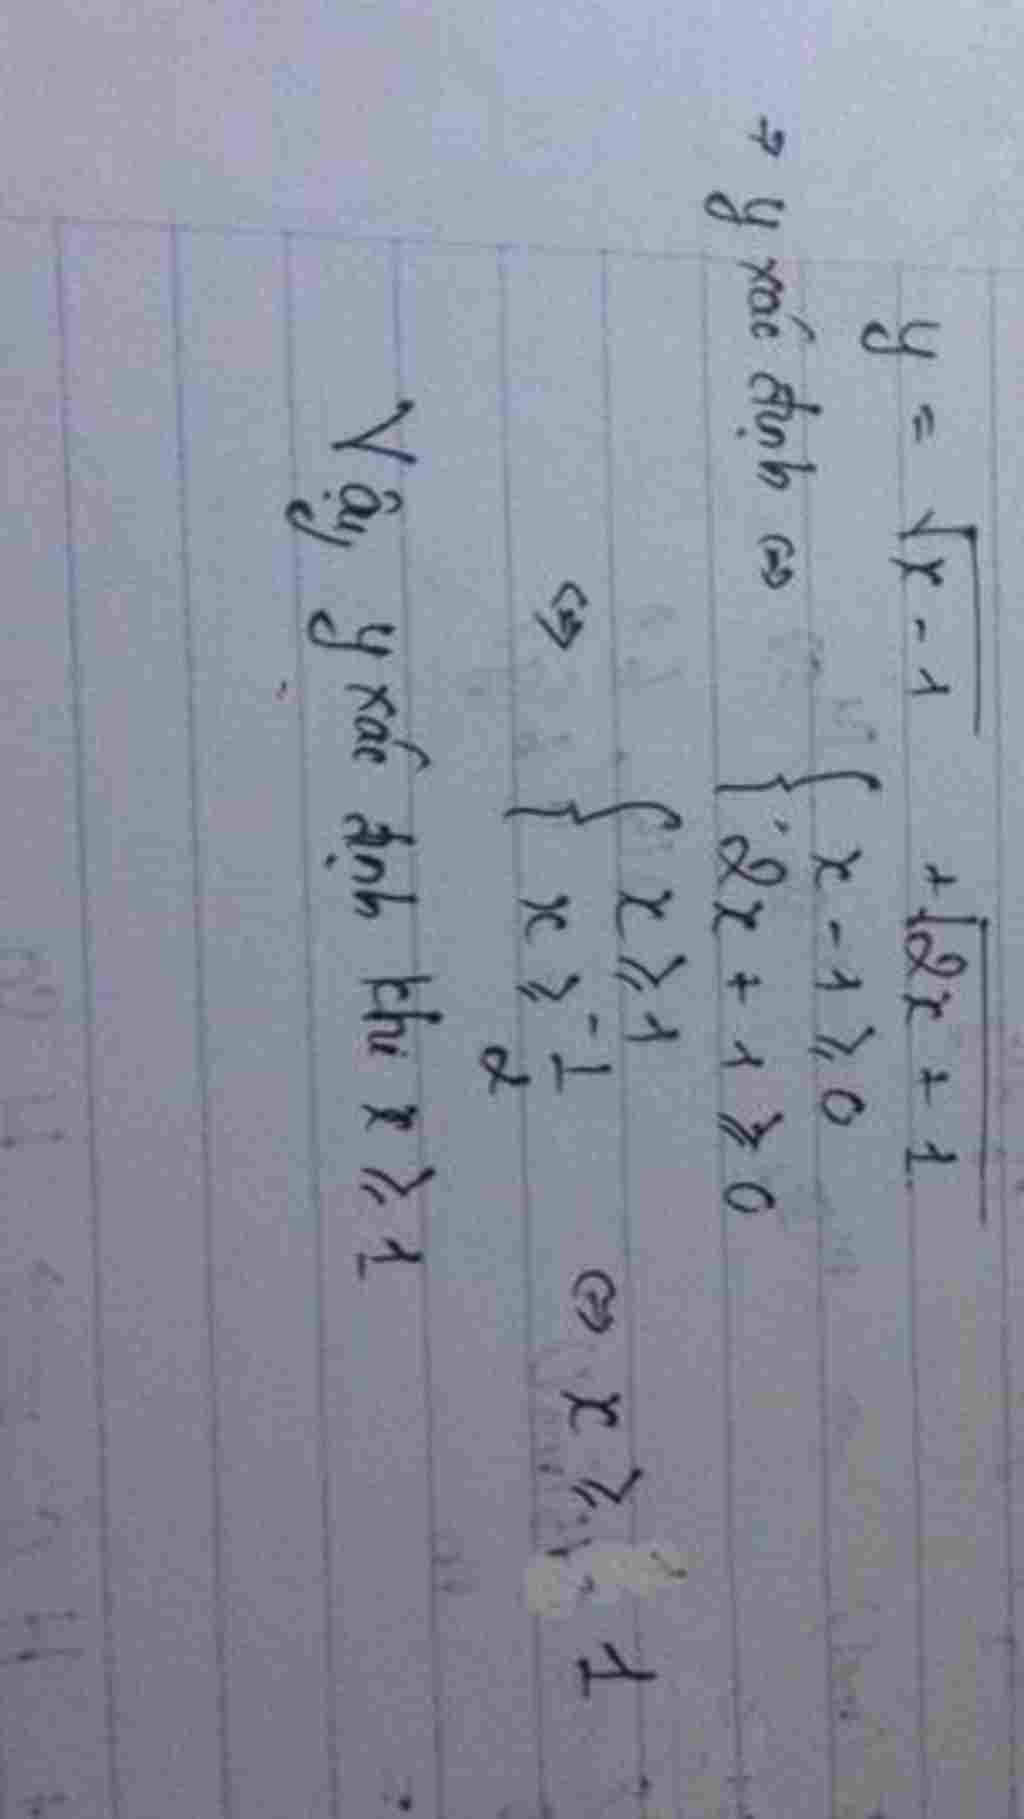 y = √(x - 1) + √(2x + 1)
→ y xác định ⇔ { x - 1 ⩾ 0
2x + 1 ⩾ 0
⇔ { x ⩾ 1
x ⩾ -1/2 ⇔ x ⩾ 1
Vậy y xác định khi x ⩾ 1